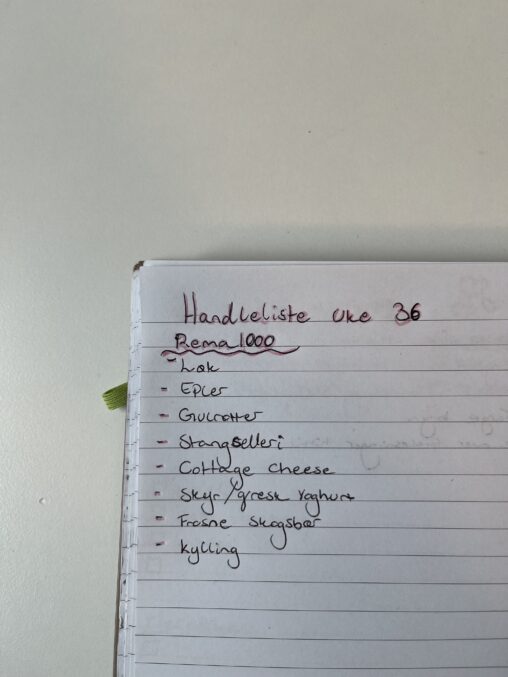 Handleliste uke 36
Rema 1000
- Løk
- Epler
- Gulrøtter
- Stangselleri
- Cottage Cheese
- Skyr/gresk Yoghurt
- Frosne Skogsbær
- Kylling